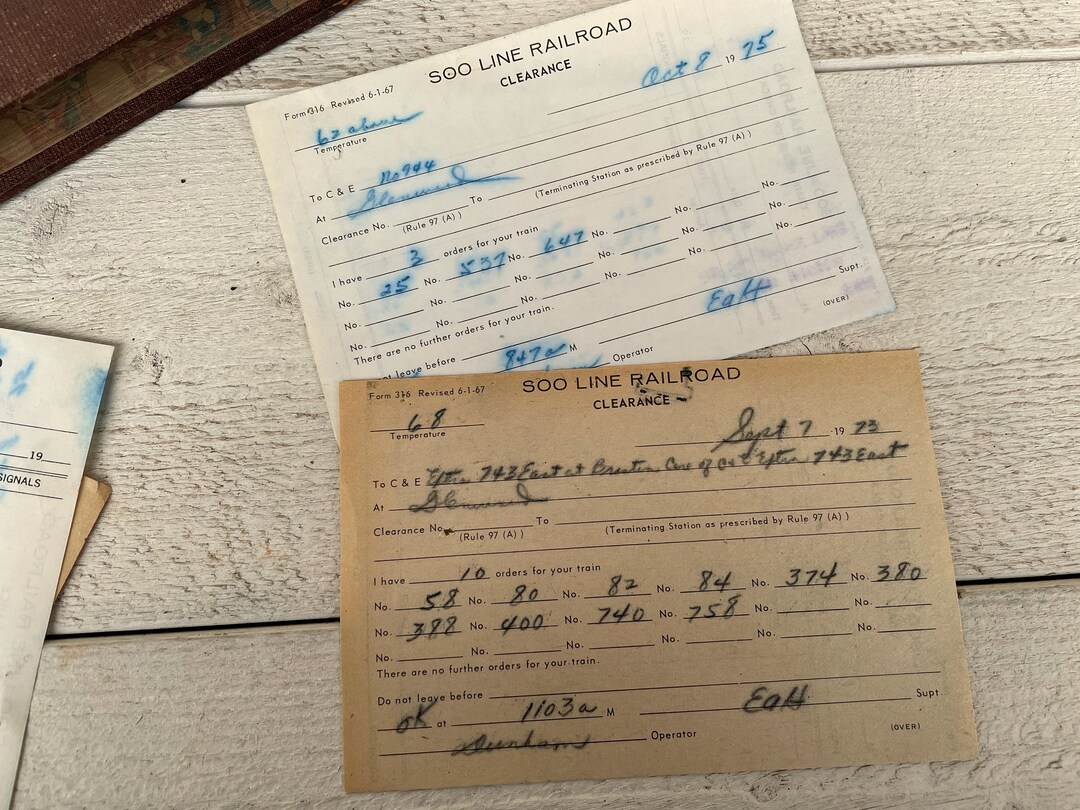 SOO LINE RAILROAD
CLEARANCE
Form 316 Revised 6-1-67
Oct 8 1975
62 above
Temperature
To C & E No 944
At Glenwood
Clearance No. To
(Rule 97 (A) ) (Terminating Station as prescribed by Rule 97 (A) )
I have 3 orders for your train
No. 25 No. 537 No. 647 No. No.
No. No. No. No. No.
No. No. No. No. No.
There are no further orders for your train.
not leave before
847a M EaH Supt.
Operator (OVER)
19
SIGNALS
Form 316 Revised 6-1-67
SOO LINE RAILROAD
CLEARANCE
68
Temperature
Sept 7 1973
To C & E Extra 743 East at Care of Extra 743 East
At Glenwood
Clearance No. To
(Rule 97 (A) ) (Terminating Station as prescribed by Rule 97 (A) )
I have 10 orders for your train
No. 58 No. 80 No. 82 No. 84 No. 374 No. 380
No. 388 No. 400 No. 740 No. 758 No. No.
No. No. No. No. No. No.
There are no further orders for your train.
Do not leave before
OK at 1103a M EaH Supt.
Dunham Operator (OVER)